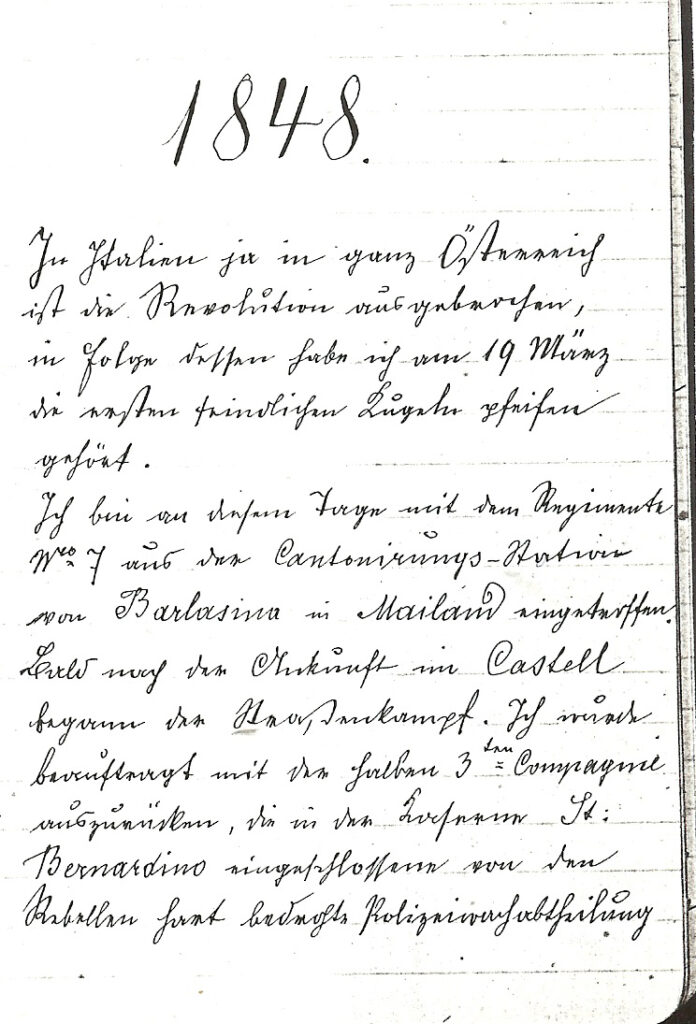 1848.
In Italien ja in ganz Österreich
ist die Revolution ausgebrochen,
in Folge dessen habe ich am 19 März
die ersten feindlichen Kugeln pfeifen
gehört.
Ich bin an diesem Tage mit dem Regimente
Nro 7 aus der Cantonirungs-Station
von Barlasina in Mailand eingetroffen.
Bald nach der Ankunft im Castell
begann der Straßenkampf. Ich wurde
beauftragt mit der halben 3ten Compagnie
auszurücken, die in der Kaserne St:
Bernardino eingeschlossene von den
Rebellen hart bedrohte Polizeiwachabtheilung